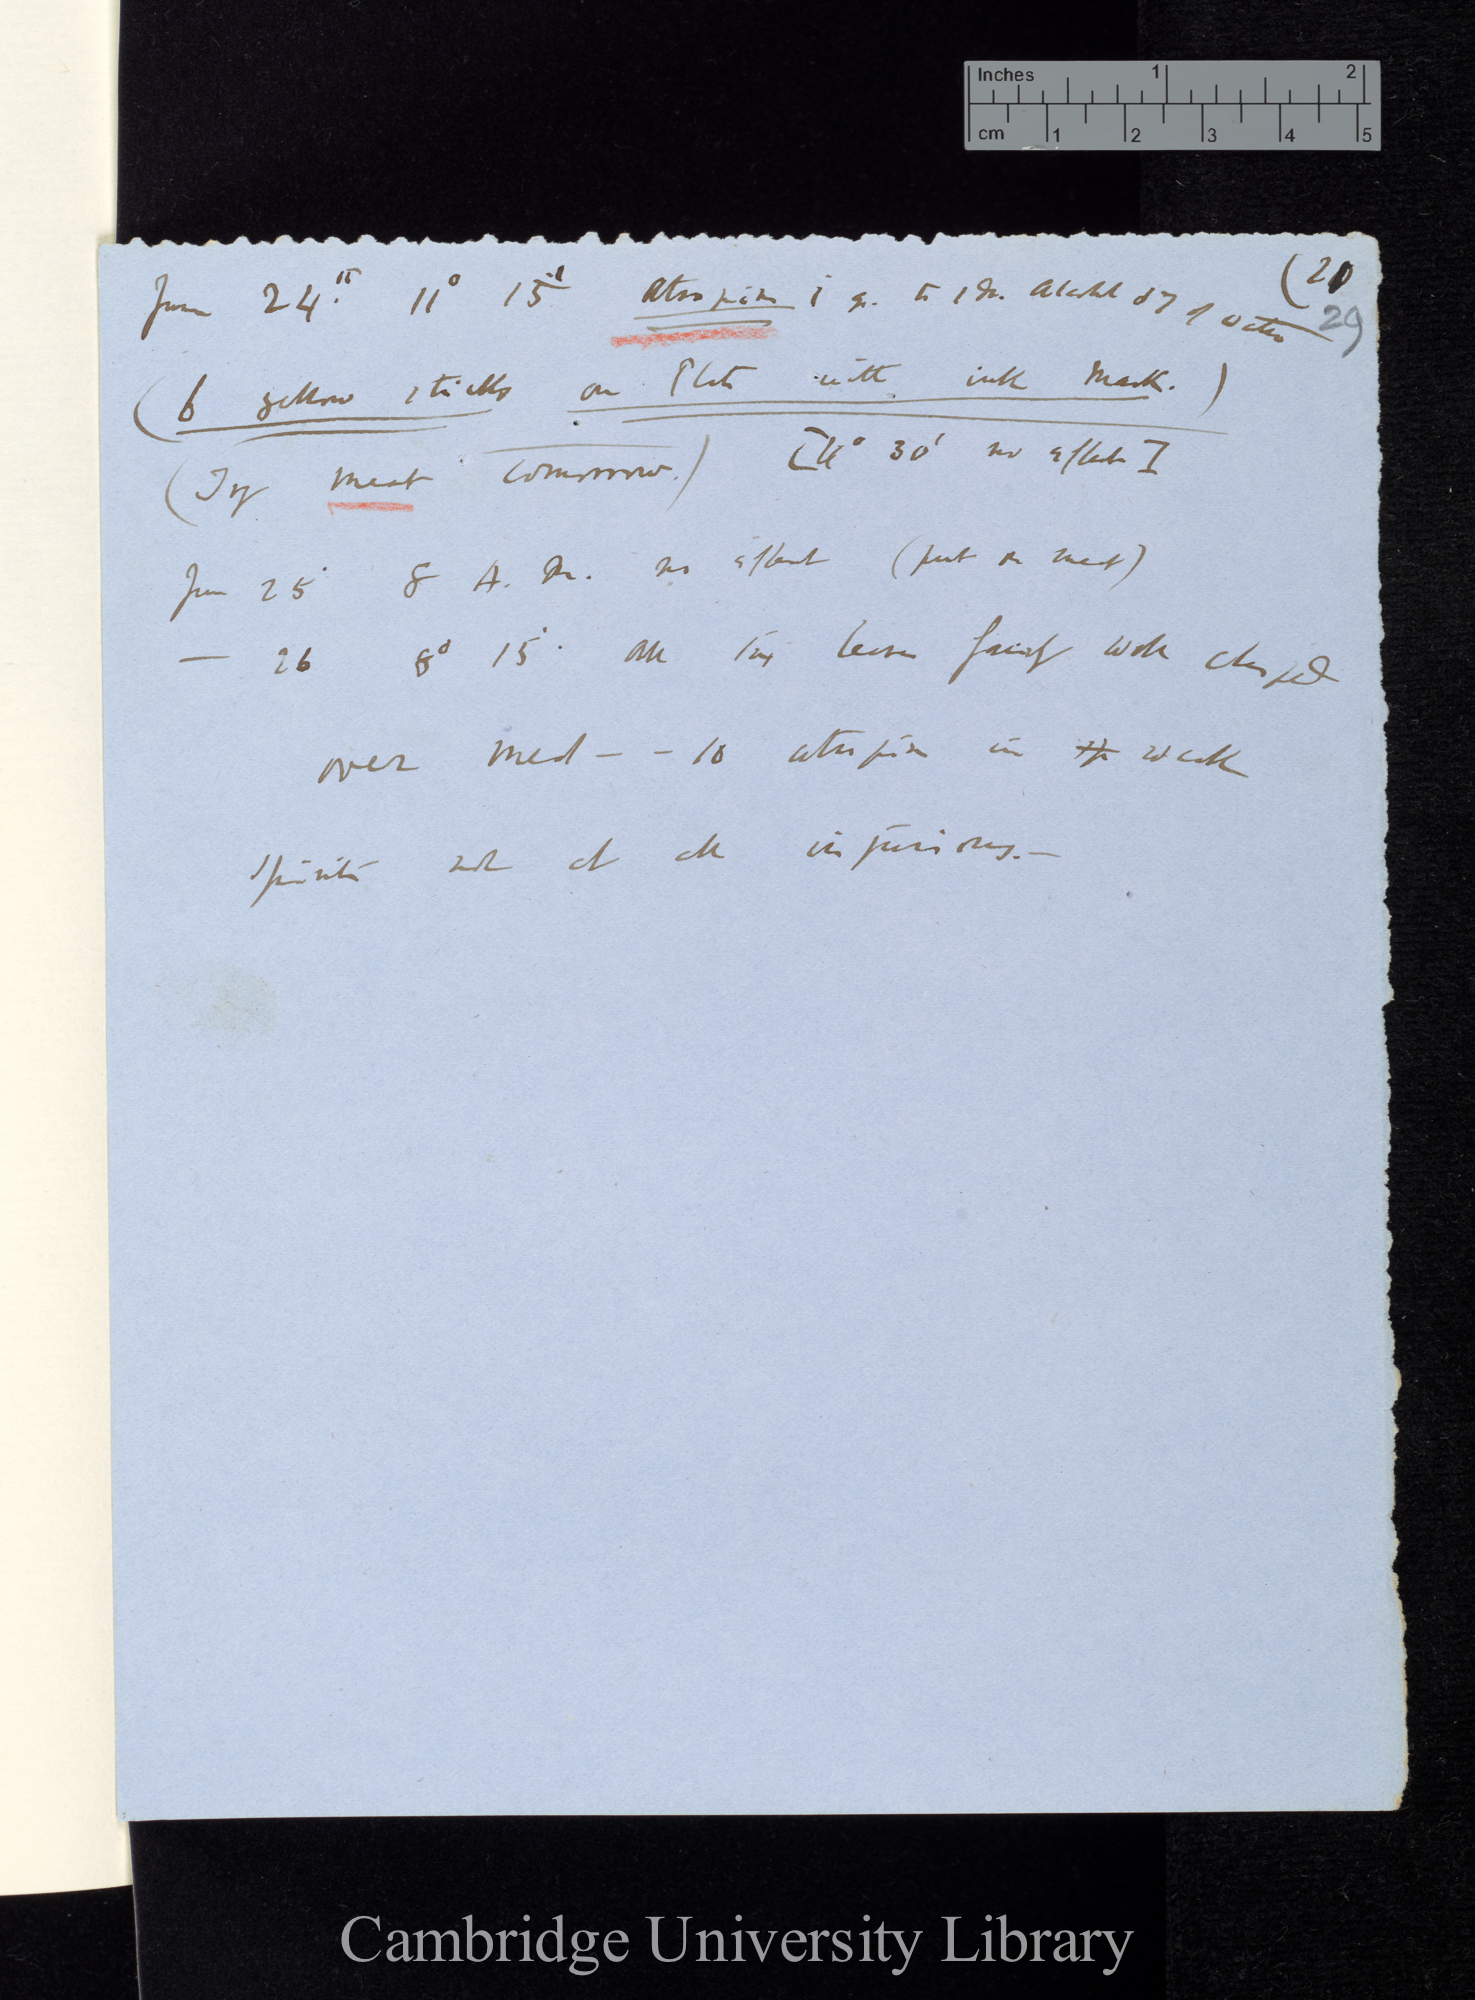 Inches 1 2
cm 1 2 3 4 5
(21
29
June 24th. 11° 15' Atropine i gr. to 1 Dr. Alcohol & 7 of water
(6 yellow sticks on Plate with ink mark.)
(Try meat tomorrow.) [11° 30' no effect]
June 25 8 A.M. no effect (put on meat)
— 26 8° 15' all six leaves fairly well clasped
over meat — — so atropine in weak
spirits not at all injurious. —
Cambridge University Library